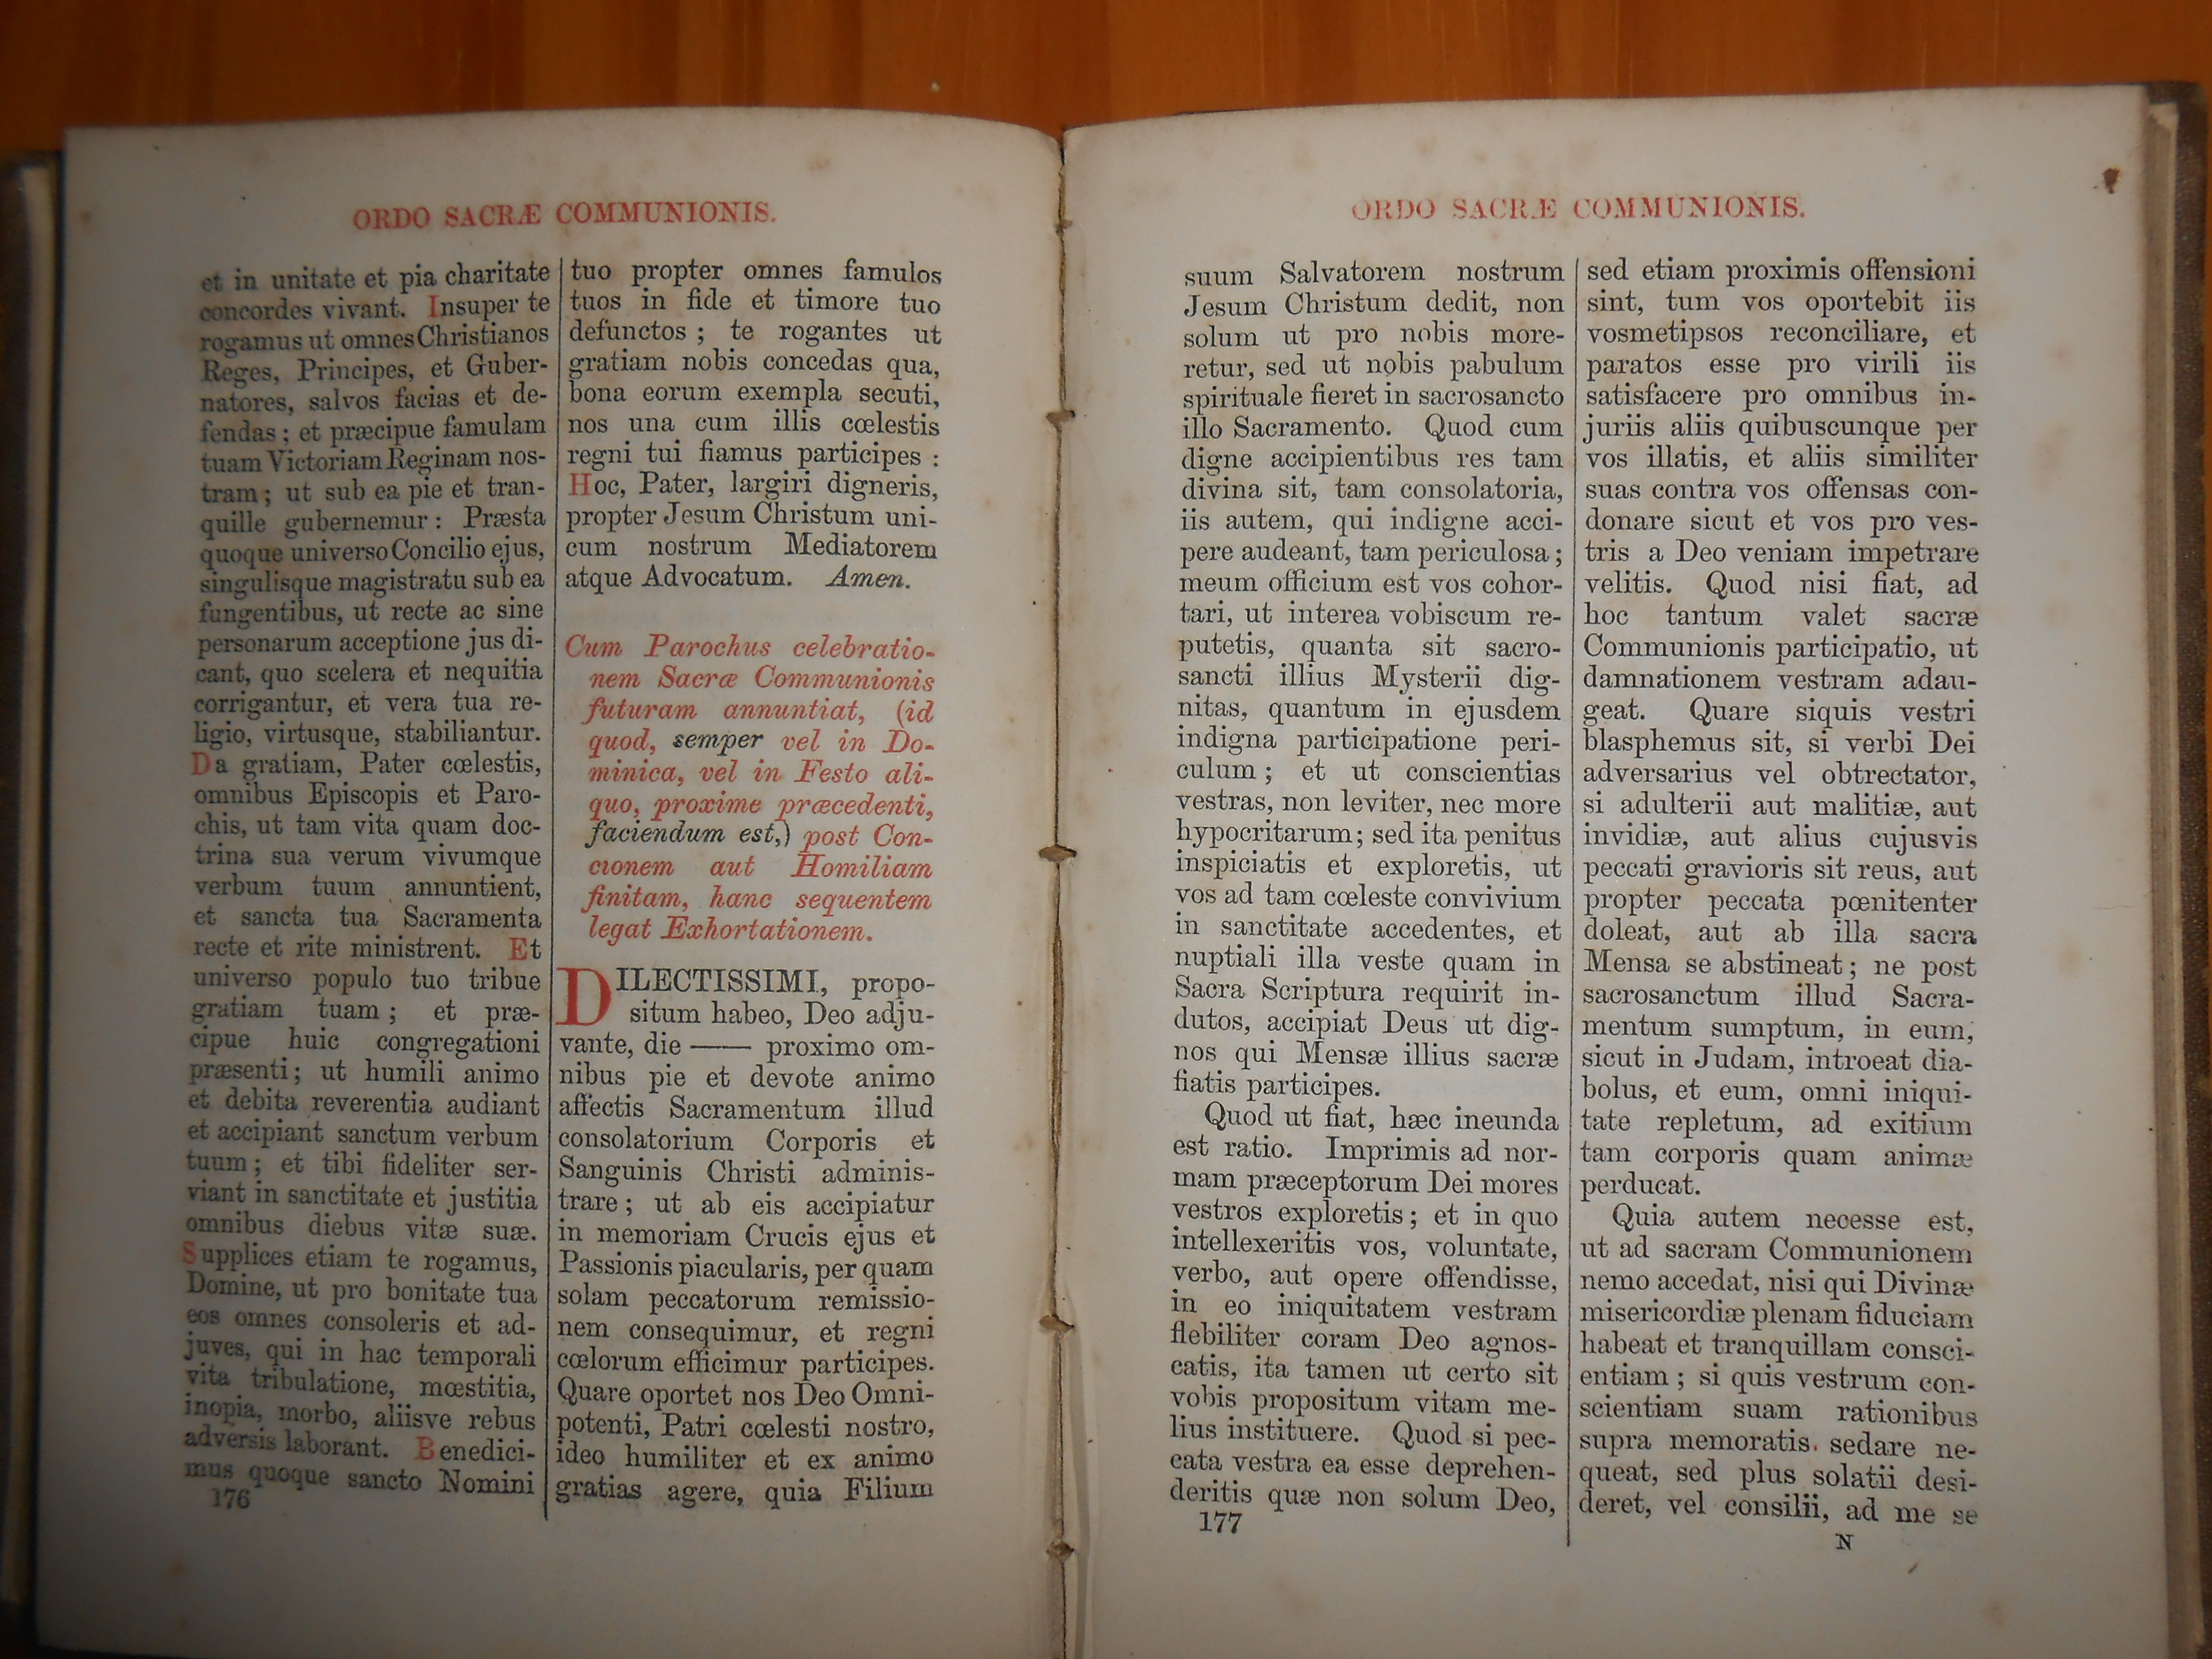 ORDO SACRÆ COMMUNIONIS.
et in unitate et pia charitate
concordes vivant. Insuper te
rogamus ut omnes Christianos
Reges, Principes, et Guber-
natores, salvos facias et de-
fendas; et præcipue famulam
tuam Victoriam Reginam nos-
tram; ut sub ea pie et tran-
quille gubernemur: Præsta
quoque universo Concilio ejus,
singulisque magistratu sub ea
fungentibus, ut recte ac sine
personarum acceptione jus di-
cant, quo scelera et nequitia
corrigantur, et vera tua re-
ligio, virtusque, stabiliantur.
Da gratiam, Pater cœlestis,
omnibus Episcopis et Paro-
chis, ut tam vita quam doc-
trina sua verum vivumque
verbum tuum annuntient,
et sancta tua Sacramenta
recte et rite ministrent. Et
universo populo tuo tribue
gratiam tuam; et præ-
cipue huic congregationi
præsenti; ut humili animo
et debita reverentia audiant
et accipiant sanctum verbum
tuum; et tibi fideliter ser-
viant in sanctitate et justitia
omnibus diebus vitæ suæ.
Supplices etiam te rogamus,
Domine, ut pro bonitate tua
eos omnes consoleris et ad-
juves, qui in hac temporali
vita tribulatione, mœstitia,
inopia, morbo, aliisve rebus
adversis laborant. Benedici-
mus quoque sancto Nomini
176
tuo propter omnes famulos
tuos in fide et timore tuo
defunctos; te rogantes ut
gratiam nobis concedas qua,
bona eorum exempla secuti,
nos una cum illis cœlestis
regni tui fiamus participes:
Hoc, Pater, largiri digneris,
propter Jesum Christum uni-
cum nostrum Mediatorem
atque Advocatum. Amen.
Cum Parochus celebratio-
nem Sacræ Communionis
futuram annuntiat, (id
quod, semper vel in Do-
minica, vel in Festo ali-
quo, proxime præcedenti,
faciendum est,) post Con-
cionem aut Homiliam
finitam, hanc sequentem
legat Exhortationem.
DILECTISSIMI, propo-
situm habeo, Deo adju-
vante, die —— proximo om-
nibus pie et devote animo
affectis Sacramentum illud
consolatorium Corporis et
Sanguinis Christi adminis-
trare; ut ab eis accipiatur
in memoriam Crucis ejus et
Passionis piacularis, per quam
solam peccatorum remissio-
nem consequimur, et regni
cœlorum efficimur participes.
Quare oportet nos Deo Omni-
potenti, Patri cœlesti nostro,
ideo humiliter et ex animo
gratias agere, quia Filium
ORDO SACRÆ COMMUNIONIS.
suum Salvatorem nostrum
Jesum Christum dedit, non
solum ut pro nobis more-
retur, sed ut nobis pabulum
spirituale fieret in sacrosancto
illo Sacramento. Quod cum
digne accipientibus res tam
divina sit, tam consolatoria,
iis autem, qui indigne acci-
pere audeant, tam periculosa;
meum officium est vos cohor-
tari, ut interea vobiscum re-
putetis, quanta sit sacro-
sancti illius Mysterii dig-
nitas, quantum in ejusdem
indigna participatione peri-
culum; et ut conscientias
vestras, non leviter, nec more
hypocritarum; sed ita penitus
inspiciatis et exploretis, ut
vos ad tam cœleste convivium
in sanctitate accedentes, et
nuptiali illa veste quam in
Sacra Scriptura requirit in-
dutos, accipiat Deus ut dig-
nos qui Mensæ illius sacræ
fiatis participes.
Quod ut fiat, hæc ineunda
est ratio. Imprimis ad nor-
mam præceptorum Dei mores
vestros exploretis; et in quo
intellexeritis vos, voluntate,
verbo, aut opere offendisse,
in eo iniquitatem vestram
flebiliter coram Deo agnos-
catis, ita tamen ut certo sit
vobis propositum vitam me-
lius instituere. Quod si pec-
cata vestra ea esse deprehen-
deritis quæ non solum Deo,
177
sed etiam proximis offensioni
sint, tum vos oportebit iis
vosmetipsos reconciliare, et
paratos esse pro virili iis
satisfacere pro omnibus in-
juriis aliis quibuscunque per
vos illatis, et aliis similiter
suas contra vos offensas con-
donare sicut et vos pro ves-
tris a Deo veniam impetrare
velitis. Quod nisi fiat, ad
hoc tantum valet sacræ
Communionis participatio, ut
damnationem vestram adau-
geat. Quare siquis vestri
blasphemus sit, si verbi Dei
adversarius vel obtrectator,
si adulterii aut malitiæ, aut
invidiæ, aut alius cujusvis
peccati gravioris sit reus, aut
propter peccata pœnitenter
doleat, aut ab illa sacra
Mensa se abstineat; ne post
sacrosanctum illud Sacra-
mentum sumptum, in eum,
sicut in Judam, introeat dia-
bolus, et eum, omni iniqui-
tate repletum, ad exitium
tam corporis quam animæ
perducat.
Quia autem necesse est,
ut ad sacram Communionem
nemo accedat, nisi qui Divinæ
misericordiæ plenam fiduciam
habeat et tranquillam consci-
entiam; si quis vestrum con-
scientiam suam rationibus
supra memoratis. sedare ne-
queat, sed plus solatii desi-
deret, vel consilii, ad me se
N